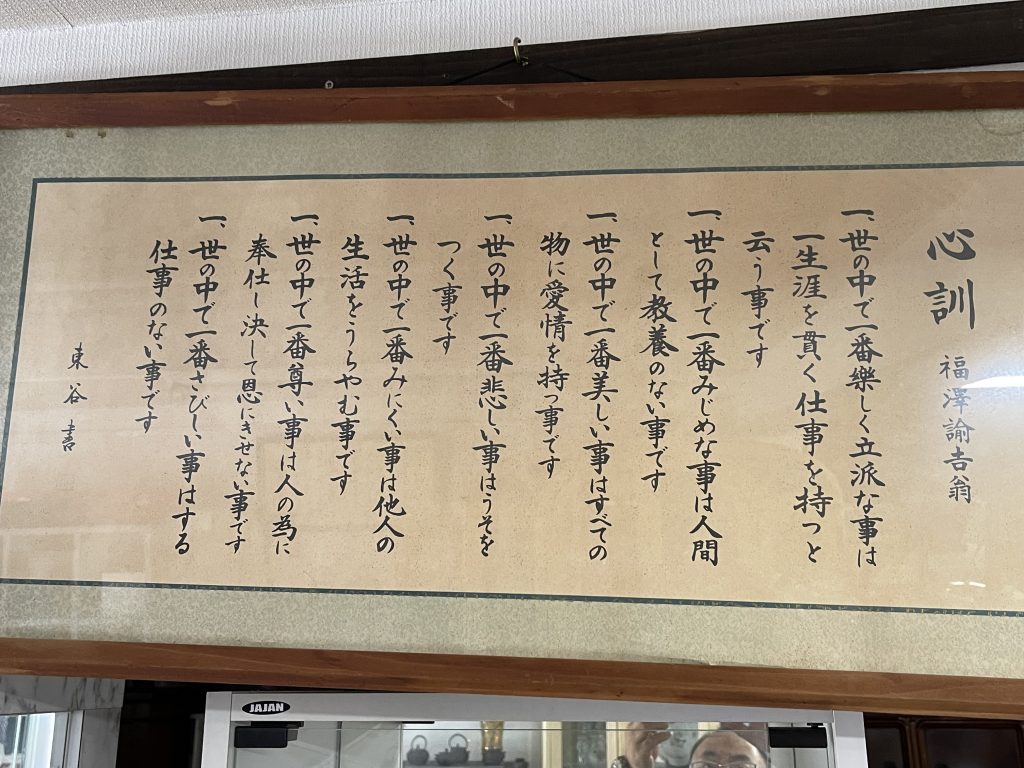 心訓　福澤諭吉翁
一、世の中で一番樂しく立派な事は
一生涯を貫く仕事を持つと
云う事です
一、世の中で一番みじめな事は人間
として教養のない事です
一、世の中で一番美しい事はすべての
物に愛情を持つ事です
一、世の中で一番悲しい事はうそを
つく事です
一、世の中で一番みにくい事は他人の
生活をうらやむ事です
一、世の中で一番尊い事は人の為に
奉仕し決して恩にきせない事です
一、世の中で一番さびしい事はする
仕事のない事です
東谷書
JAJAN